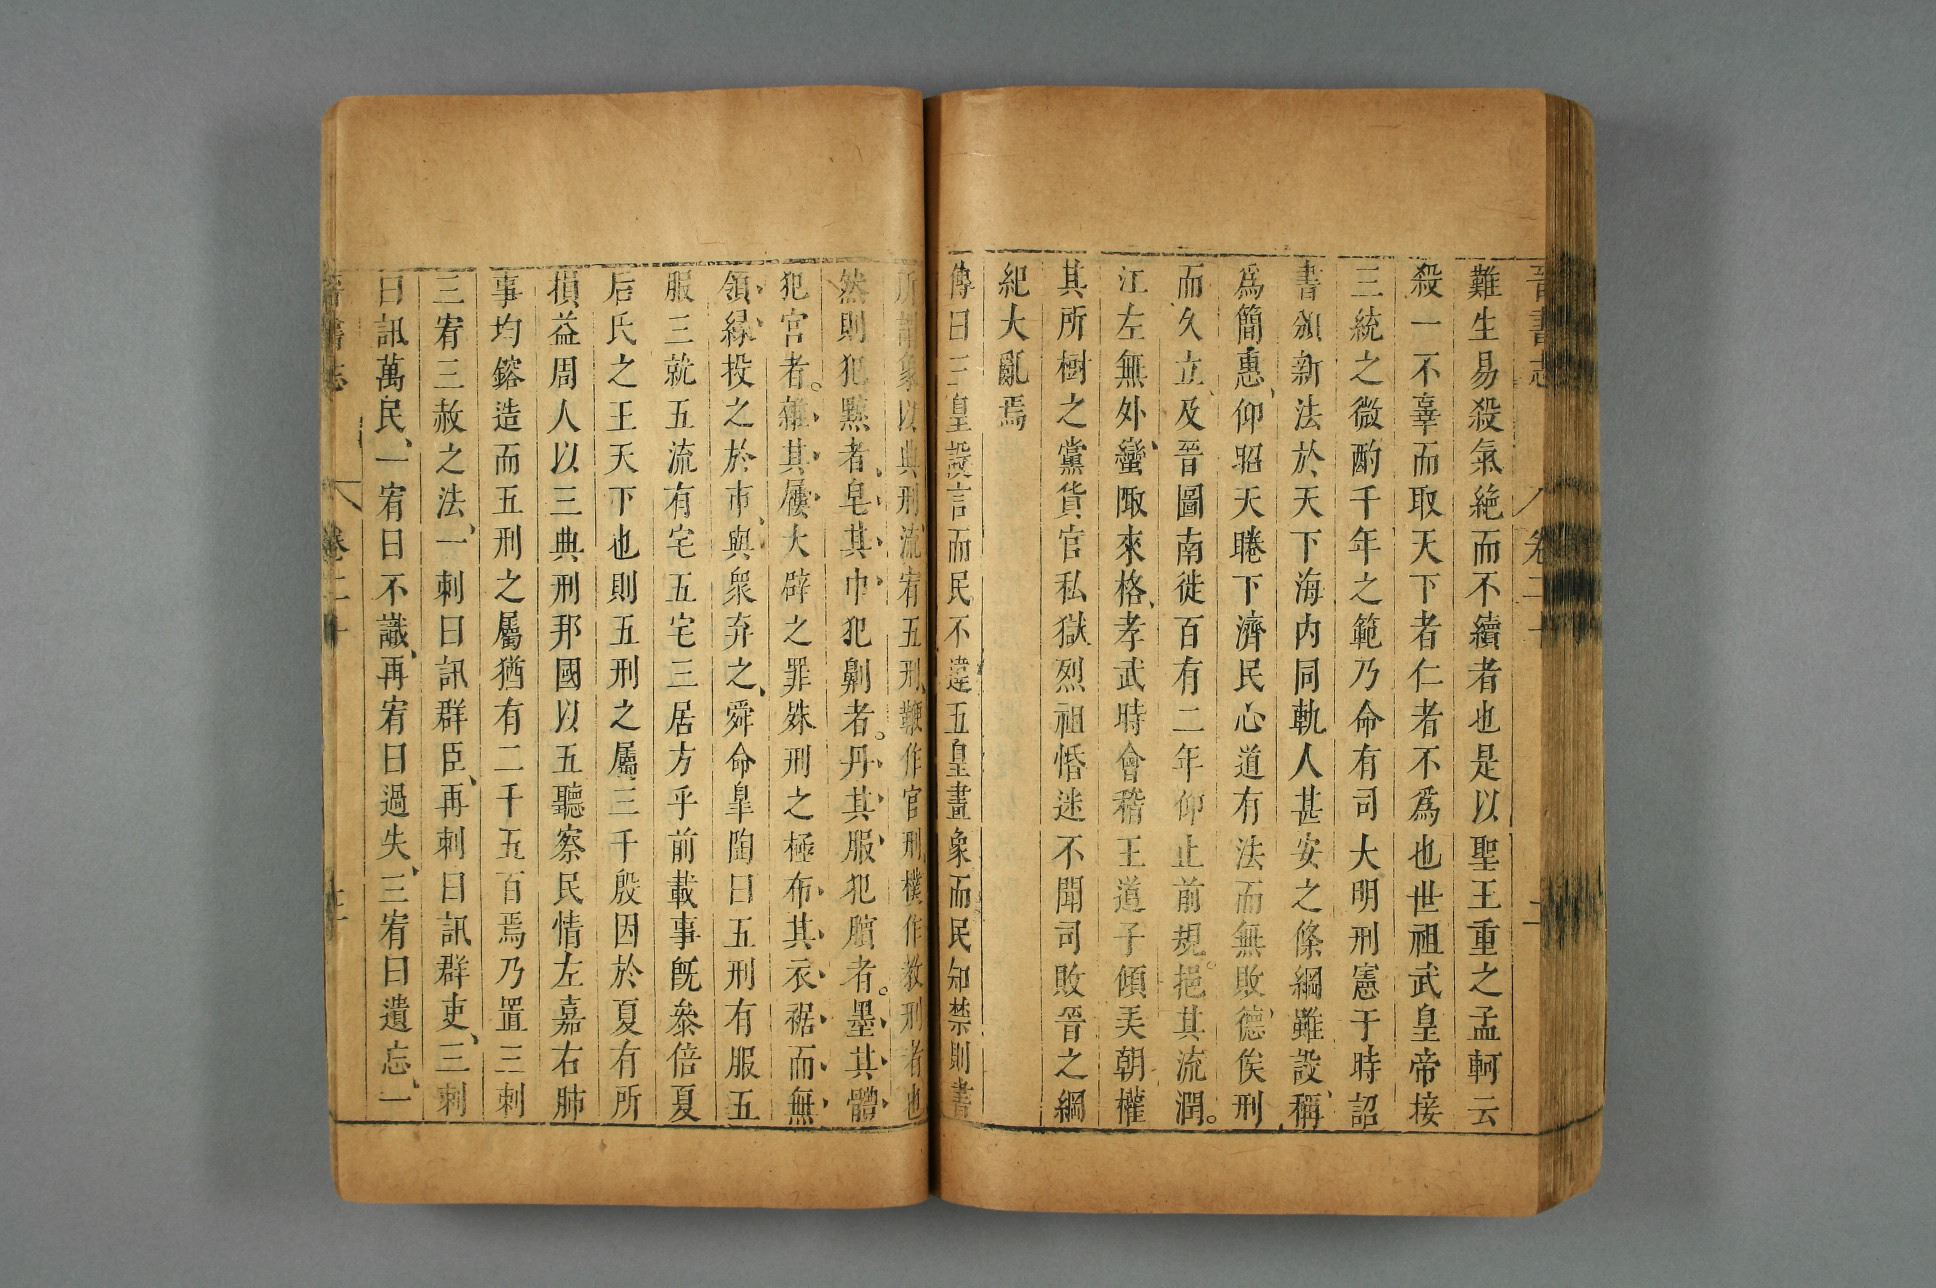 晉書志 卷三十 二
難生易殺氣絶而不續者也是以聖王重之孟軻云
殺一不辜而取天下者仁者不爲也世祖武皇帝接
三統之微酌千年之範乃命有司大明刑憲于時詔
書頒新法於天下海內同軌人甚安之條綱雖設、稱
爲簡惠、仰昭天睠下濟民心道有法而無敗、德俟刑
而久立、及晉圖南徙百有二年仰止前規。挹其流潤。
江左無外、蠻陬來格、孝武時會稽王道子傾弄朝權
其所樹之黨貨官私獄烈祖惛迷不聞司敗晉之綱
紀大亂焉
傳曰三皇設言而民不違五皇畫象而民知禁則書
所謂象以典刑、流宥五刑、鞭作官刑、樸作教刑者也
然則犯黥者、皂其巾犯劓者。丹其服犯臏者。墨其體
犯宮者。雜其屨大辟之罪姝刑之極布其衣裾而無
領緣投之於市、與衆弃之、舜命皐陶曰五刑有服五
服三就五流有宅五宅三居方乎前載事既參倍夏
后氏之王天下也則五刑之屬三千殷因於夏有所
損益周人以三典刑邦國以五聽察民情左嘉右肺
事均鎔造而五刑之屬猶有二千五百焉乃置三刺
三宥三赦之法、一刺曰訊群臣、再刺曰訊群吏、三刺
曰訊萬民、一宥曰不識、再宥曰過失、三宥曰遺忘、一
晉書志 卷三十